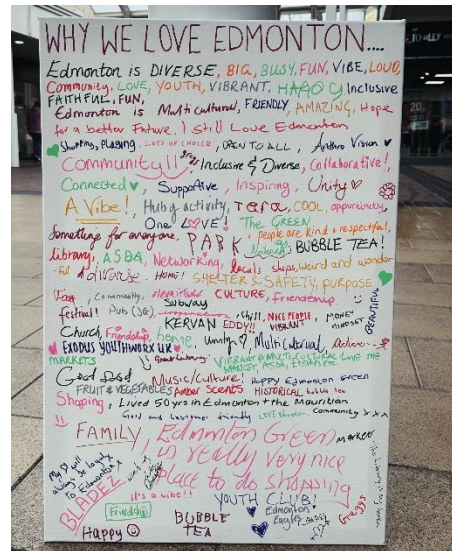 WHY WE LOVE EDMONTON....
Edmonton is DIVERSE, BIG, BUSY, FUN, VIBE, LOUD,
Community, LOVE, YOUTH, VIBRANT, Inclusive
FAITHFUL, FUN,
Edmonton is Multicultural, FRIENDLY, AMAZING, Hope
for a better Future. I still Love Edmonton
Shopping, Playing, LOTS OF CHOICE, OPEN TO ALL, Anthro Vision
Community!! Inclusive & Diverse, Collaborative!,
Connected, Supportive, Inspiring, Unity
A Vibe!, Hub of activity, COOL, oppurtunity,
One LOVE! The GREEN,
Something for everyone, PARK, people are kind + respectful,
BUBBLE TEA!
library, ASDA, Networking, locals shops, weird and wonder
-ful diverse HOME! SHELTER & SAFETY, purpose
Community, CULTURE, Friendship,
festival! Pubs Subway
chill, NICE PEOPLE VIBRANT MONEY MINDSET
BEAUTIFUL
KERVAN EDDY!!
Church, Friendship, home, Unity, Multicultural,
EXODUS YOUTHWORX UK
MARKETS
VIBRANT & MULTICULTURAL LOVE THE
MARKET, ASDA,
Good food Music/Culture! Happy Edmonton Green
FRUIT & VEGETABLES Amber Scents HISTORICAL, bubble tea
Shopping, Lived 50 yrs in Edmonton + the Mauritian
friendly Community xxx
FAMILY, Edmonton Green market
is really very nice
place to do shopping
My ❤ will
always be
to Edmonton
BLADEZ
it's a vibe!!
YOUTH CLUB!
Friendship
Edmonton
Eagles
Greggs
BUBBLE
TEA
Happy ☺
20